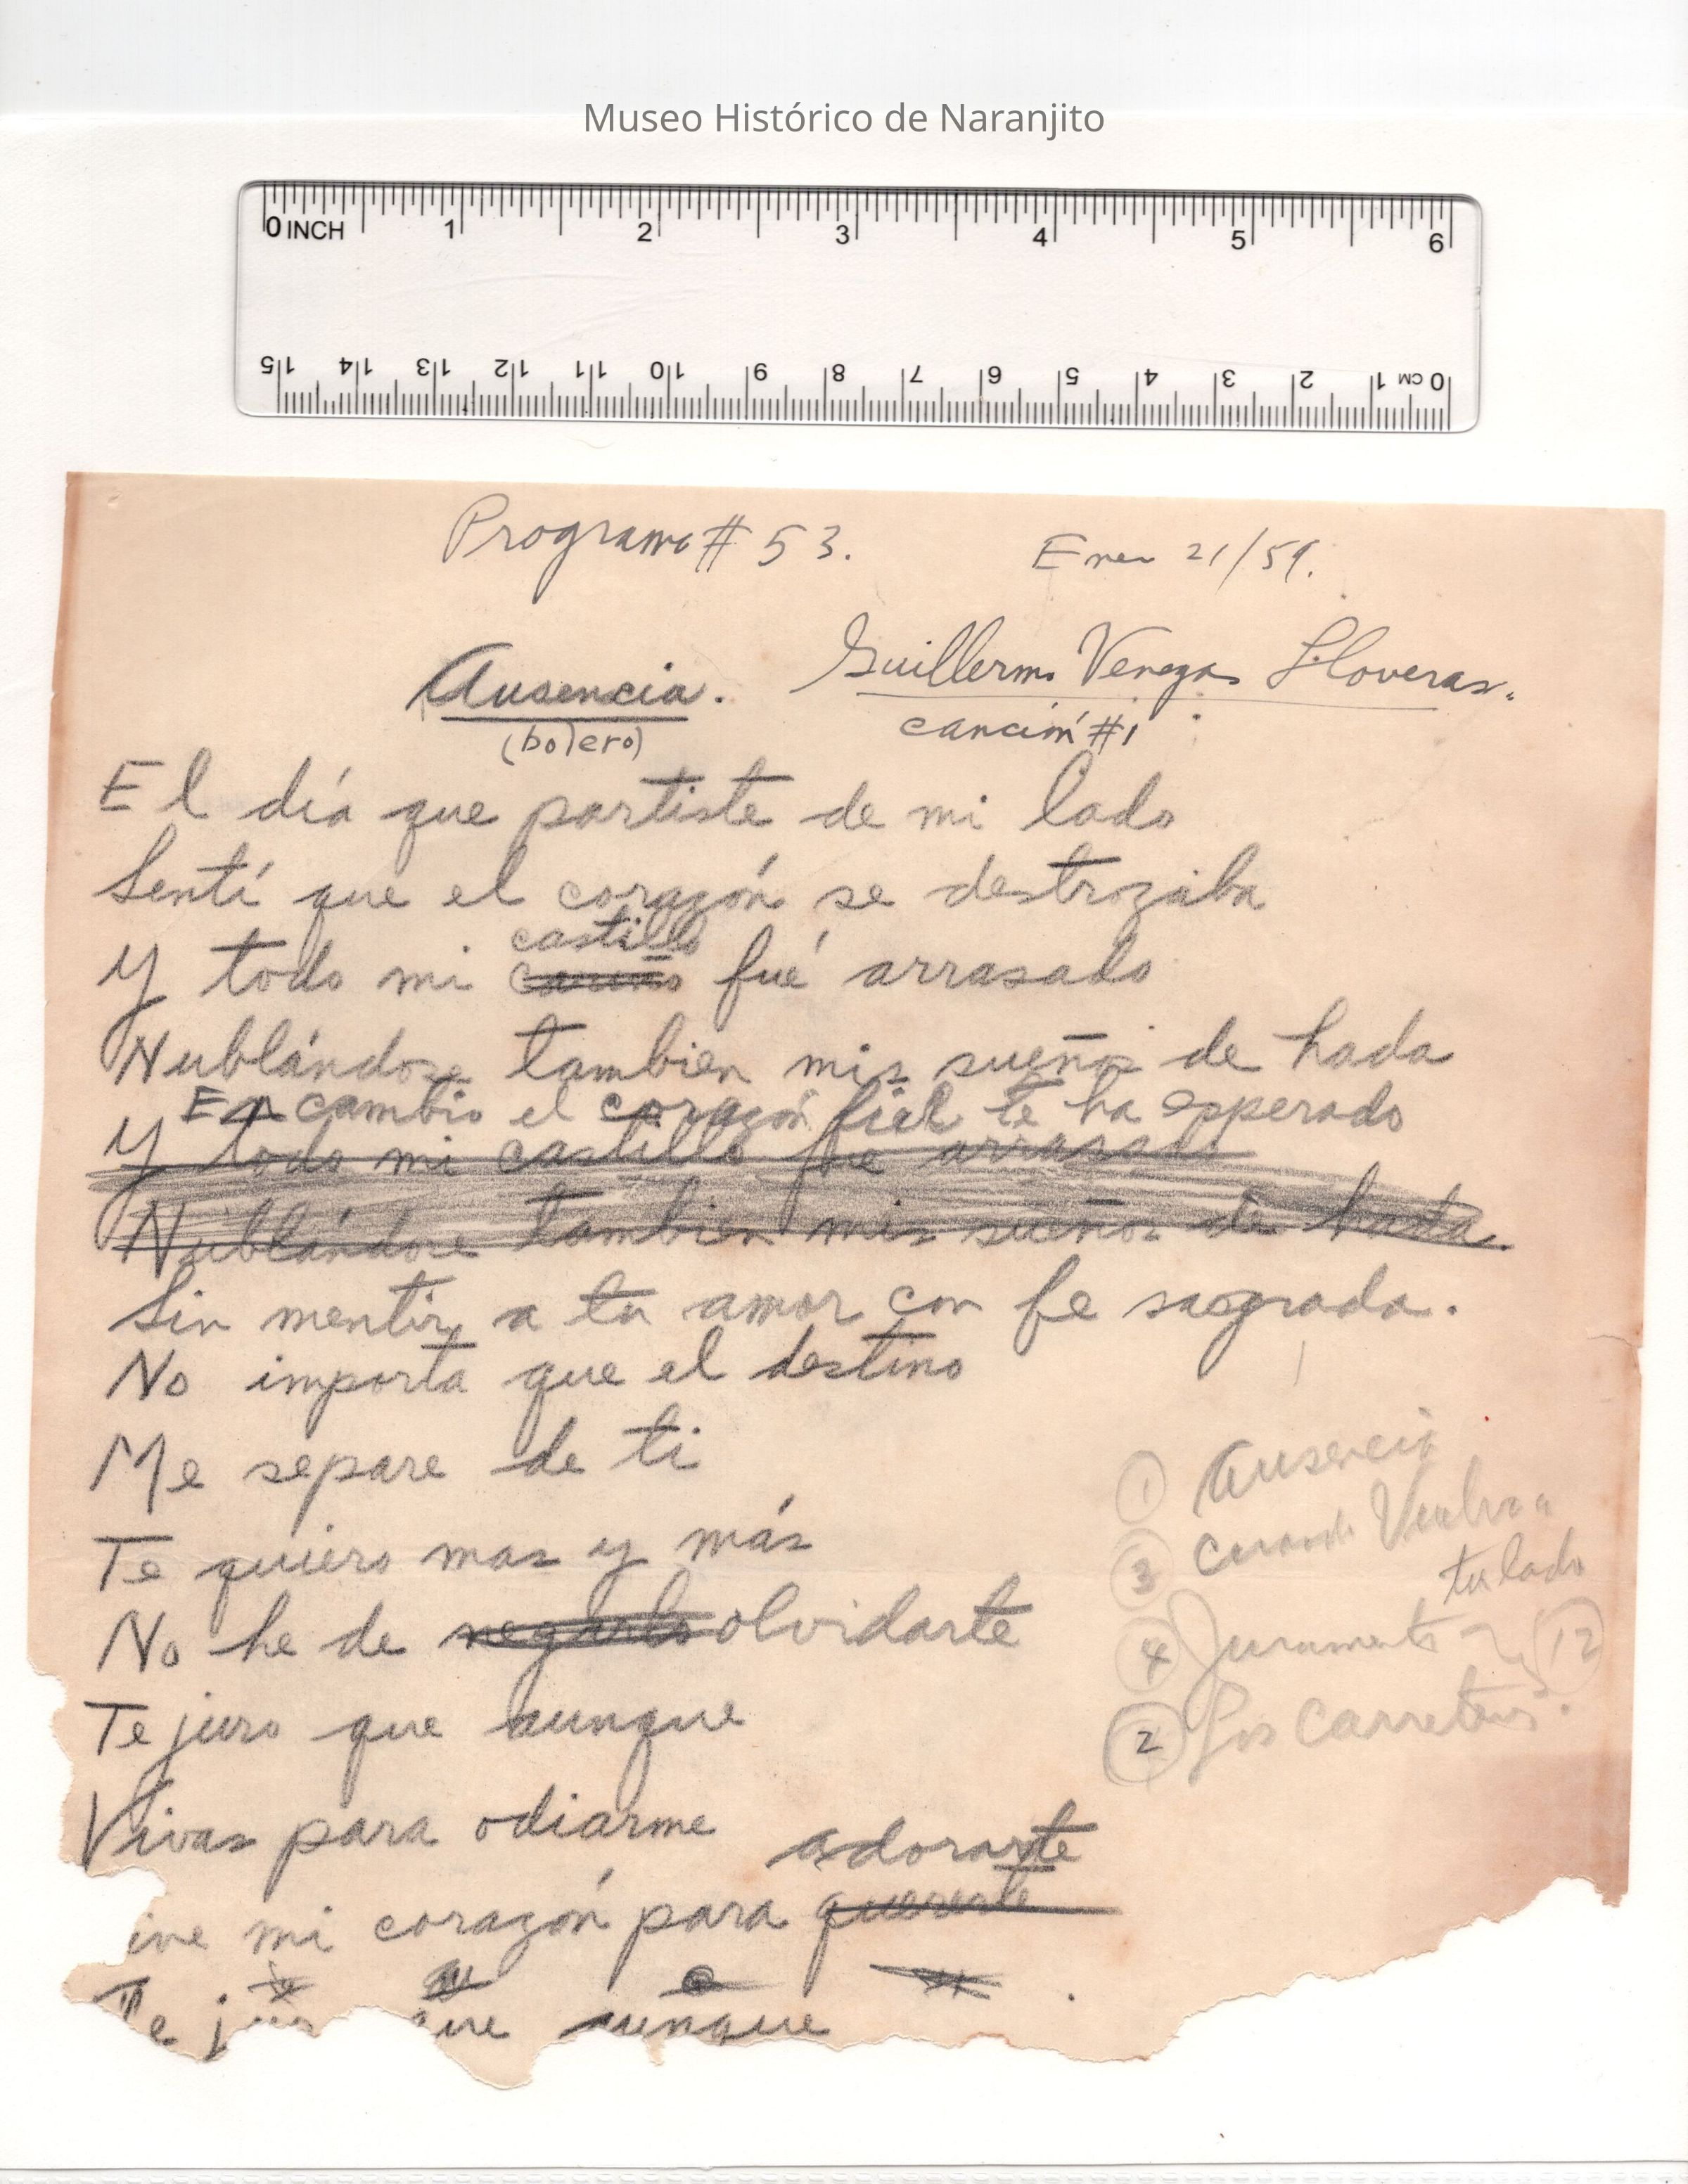 Museo Histórico de Naranjito
0 INCH 1 2 3 4 5 6
15 14 13 12 11 10 9 8 7 6 5 4 3 2 1 CM 0
Programa # 53. Enero 21/59.
Ausencia. Guillermo Venegas Lloveras.
(bolero) canción #1
El día que partiste de mi lado
Sentí que el corazón se destrozaba
castillo
Y todo mi cariño fué arrasado
Nublándose tambien mis sueños de hada
En cambio el corazón fiel te ha esperado
Y todo mi castillo fue arrasado
Nublándose tambien mis sueños de hada.
Sin mentir a tu amor con fe sagrada.
No importa que el destino
Me separe de ti
Te quiero mas y más
No he de negarlo olvidarte
Te juro que aunque
Vivas para odiarme
adorarte
ive mi corazón para quererte
Te juro que aunque
1 Ausencia
3 Cuando Vuelva a
tu lado
4 Juramento 12
2 Los Carreteros.